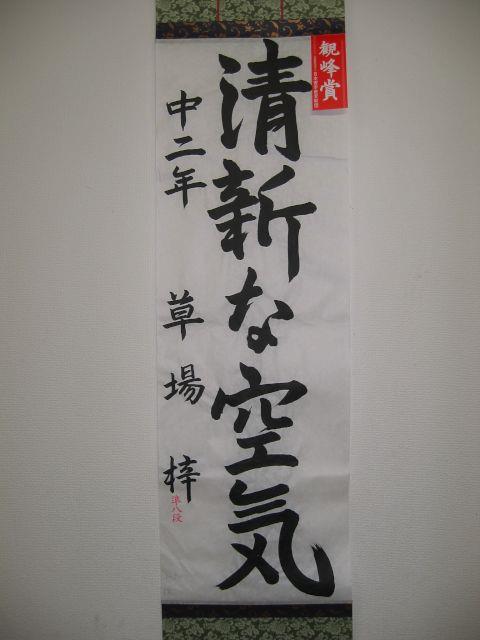 観峰賞
清新な空気
中二年 草場 梓
準八段